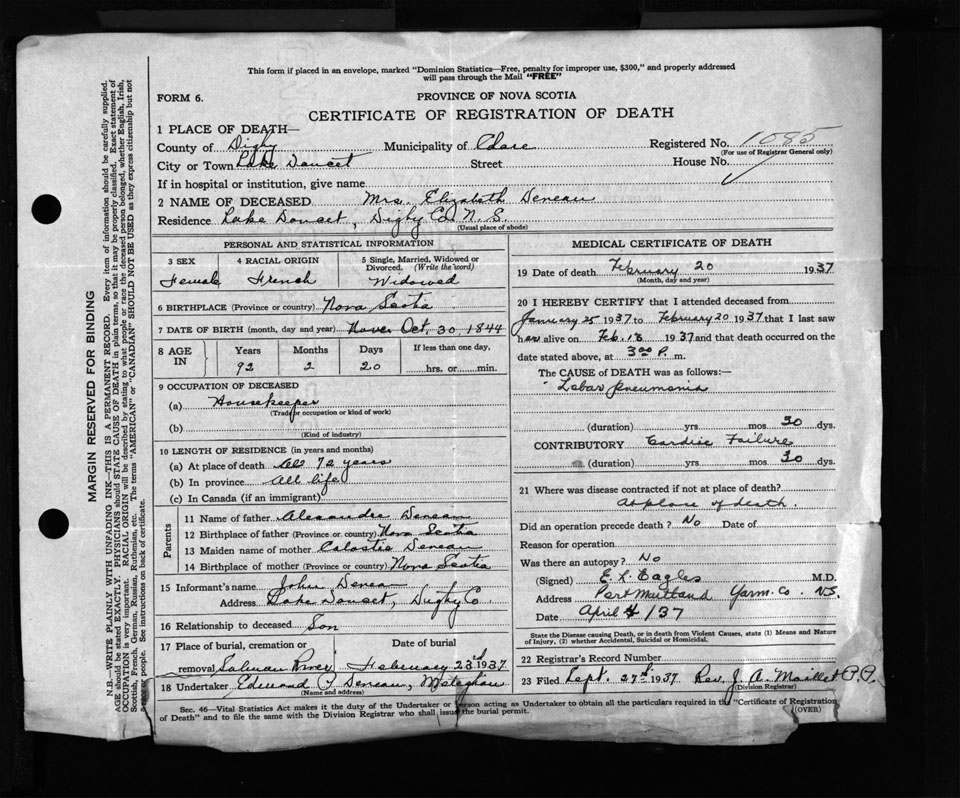 This form if placed in an envelope, marked "Dominion Statistics—Free, penalty for improper use, $300," and properly addressed
will pass through the Mail "FREE"
FORM 6.
PROVINCE OF NOVA SCOTIA
CERTIFICATE OF REGISTRATION OF DEATH
1 PLACE OF DEATH—
County of Digby Municipality of Clare Registered No. 1085
(For use of Registrar General only)
City or Town Lake Doucet Street House No.
If in hospital or institution, give name
2 NAME OF DECEASED Mrs. Elizabeth Deneau
Residence Lake Doucet, Digby Co. N. S.
(Usual place of abode)
PERSONAL AND STATISTICAL INFORMATION
3 SEX 4 RACIAL ORIGIN 5 Single, Married, Widowed or Divorced. (Write the word)
Female French Widowed
6 BIRTHPLACE (Province or country) Nova Scotia
7 DATE OF BIRTH (month, day and year) Oct. 30, 1844
8 AGE IN Years Months Days If less than one day,
92 2 20 hrs. or min.
9 OCCUPATION OF DECEASED
(a) Housekeeper
(Trade or occupation or kind of work)
(b)
(Kind of industry)
10 LENGTH OF RESIDENCE (in years and months)
(a) At place of death 72 years
(b) In province All life
(c) In Canada (if an immigrant)
Parents
11 Name of father Alexandre Deneau
12 Birthplace of father (Province or country) Nova Scotia
13 Maiden name of mother Deneau
14 Birthplace of mother (Province or country) Nova Scotia
15 Informant's name John
Address Lake Doucet, Digby Co
16 Relationship to deceased Son
17 Place of burial, cremation or Date of burial
removal Salmon River February 23rd 1937
18 Undertaker Edmund Deneau, Meteghan
(Name and address)
MEDICAL CERTIFICATE OF DEATH
19 Date of death February 20 1937
(Month, day and year)
20 I HEREBY CERTIFY that I attended deceased from
January 25 1937 to February 20 1937 that I last saw
her alive on Feb. 18 1937 and that death occurred on the
date stated above, at 3.00 P. m.
The CAUSE of DEATH was as follows:—
Lobar pneumonia
(duration) yrs mos 30 dys.
CONTRIBUTORY Cardiac Failure
(duration) yrs mos 30 dys.
21 Where was disease contracted if not at place of death?
At place of death.
Did an operation precede death? No Date of
Reason for operation
Was there an autopsy? No
(Signed) E. L. Eagles M.D.
Address Port Maitland Yarm. Co. N.S.
Date April 4/37
State the Disease causing Death, or in death from Violent Causes, state (1) Means and Nature
of Injury, (2) whether Accidental, Suicidal or Homicidal.
22 Registrar's Record Number
23 Filed Sept. 27th 1937 Rev. J. A. Maillet P.P.
(Division Registrar)
Sec. 46—Vital Statistics Act makes it the duty of the Undertaker or person acting as Undertaker to obtain all the particulars required in the "Certificate of Registration
of Death" and to file the same with the Division Registrar who shall issue the burial permit. (OVER)
MARGIN RESERVED FOR BINDING
N.B.—WRITE PLAINLY WITH UNFADING INK—THIS IS A PERMANENT RECORD. Every item of information should be carefully supplied.
AGE should be stated EXACTLY. PHYSICIANS should STATE CAUSE OF DEATH in plain terms, so that it may be properly classified. Exact statement of
OCCUPATION is very important. RACIAL ORIGIN will be described by stating to what people or race the deceased person belonged, whether English, Irish,
Scottish, French, German, Russian, Ruthenian, etc. The terms "AMERICAN" or "CANADIAN" SHOULD NOT BE USED as they express citizenship but not
a race or people. See instructions on back of certificate.